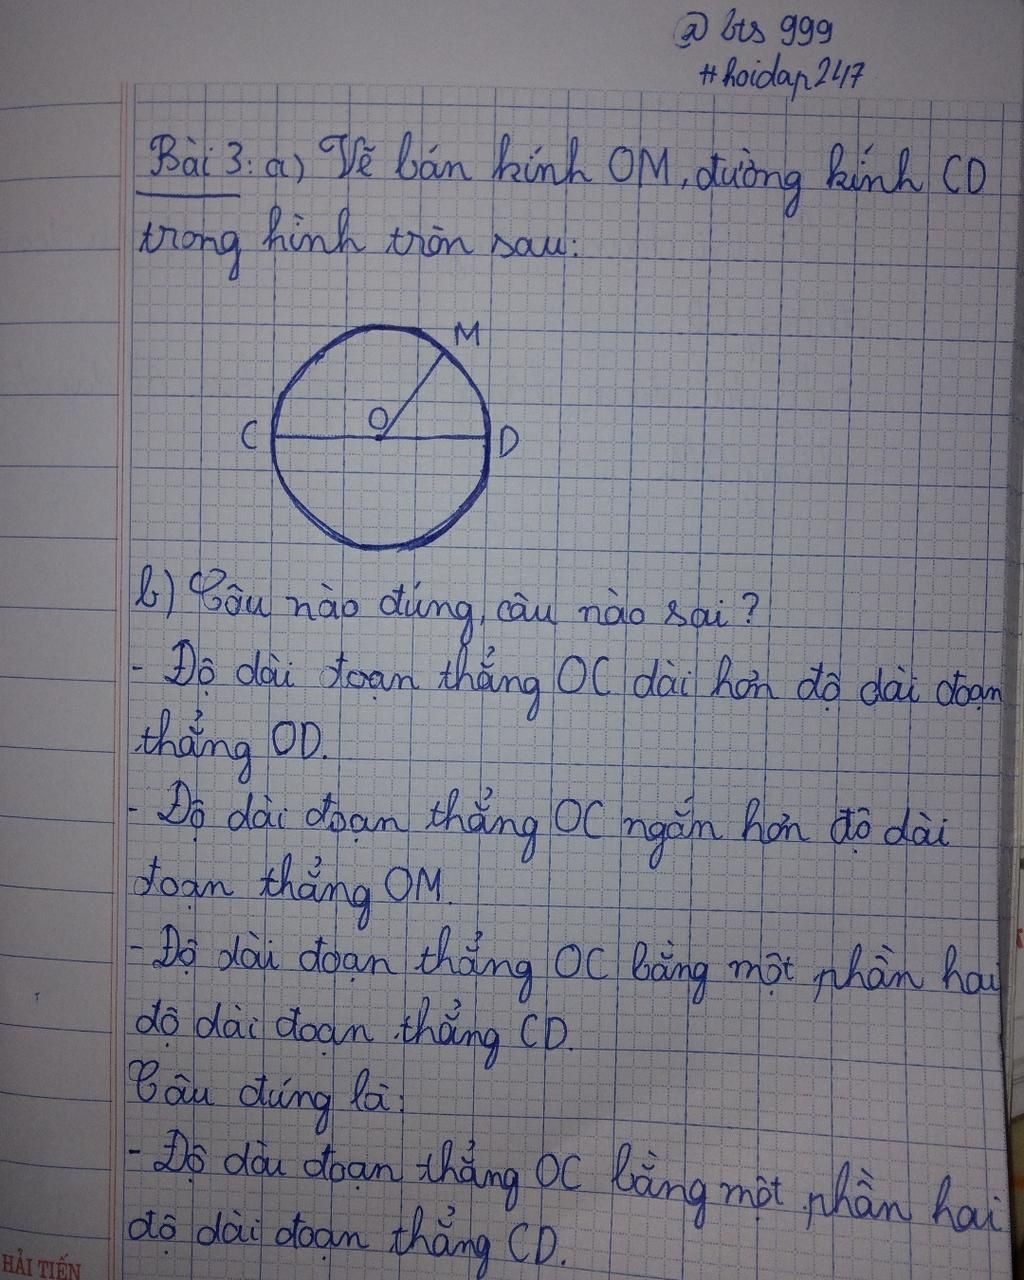 @ bts 999
#hoidap247
Bài 3: a) Vẽ bán kính OM, đường kính CD
trong hình tròn sau:
M
O
C
D
b) Câu nào đúng, câu nào sai?
- Độ dài đoạn thẳng OC dài hơn độ dài đoạn
thẳng OD.
- Độ dài đoạn thẳng OC ngắn hơn độ dài
đoạn thẳng OM.
- Độ dài đoạn thẳng OC bằng một phần hai
độ dài đoạn thẳng CD.
Câu đúng là:
- Độ dài đoạn thẳng OC bằng một phần hai
độ dài đoạn thẳng CD.
HẢI TIẾN